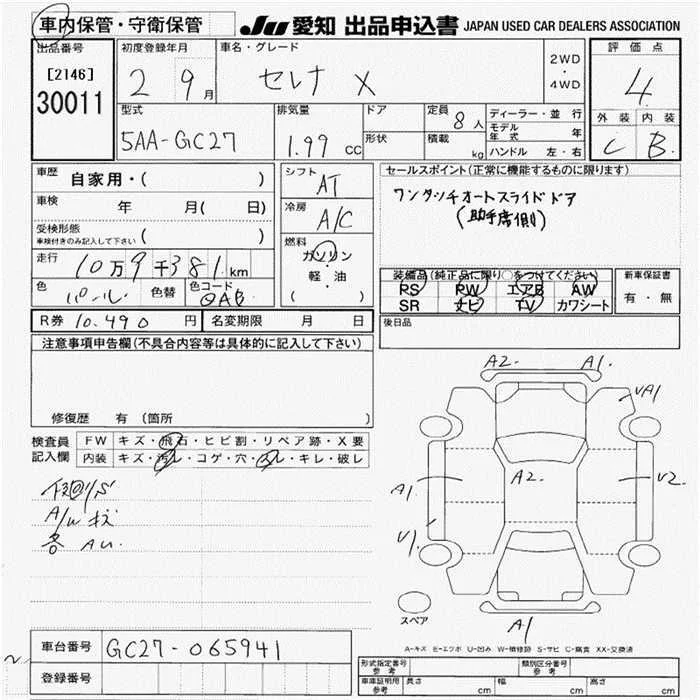 車内保管・守衛保管
JU 愛知 出品申込書 JAPAN USED CAR DEALERS ASSOCIATION
出品番号
[2146]
30011
初度登録年月
2 9月
車名・グレード
セレナ X
2WD
・
4WD
評価点
4
外装 内装
C B
型式
5AA-GC27
排気量
1.99 CC
ドア
形状
定員 8人
積載 kg
ディーラー・並行
モデル年式 年
ハンドル 左・右
車歴 自家用・( )
車検 年 月( 日)
受検形態
車検付きのみ記入して下さい ( )
走行 10万9千381km
色 パール 色替 色コード QAB
シフト AT
冷房 A/C
燃料
ガソリン
・
軽・油
( )
セールスポイント(正常に機能するものに限ります)
ワンタッチオートスライドドア
(助手席側)
装備品(純正品に限り○をつけてください)
PS PW エアB AW
SR ナビ TV カワシート
新車保証書
有・無
R券 10,490円 名変期限 月 日
後日品
注意事項申告欄(不具合内容等は具体的に記入して下さい)
修復歴 有 (箇所 )
検査員記入欄
FW キズ・飛石・ヒビ割・リペア跡・X要
内装 キズ・汚レ・コゲ・穴・スレ・キレ・破レ
下廻リS
A/W キズ
各 AU
A2 A1
UA1
A1 A2 U2
U1
スペア
A1
A-キズ E-エクボ U-凹み W-補修跡 S-サビ C-腐食 XX-交換済
車台番号 GC27-065941
登録番号
形式指定番号 参考
類別区分番号 参考
車庫証明用 参考 長さ cm 幅 cm 高さ cm